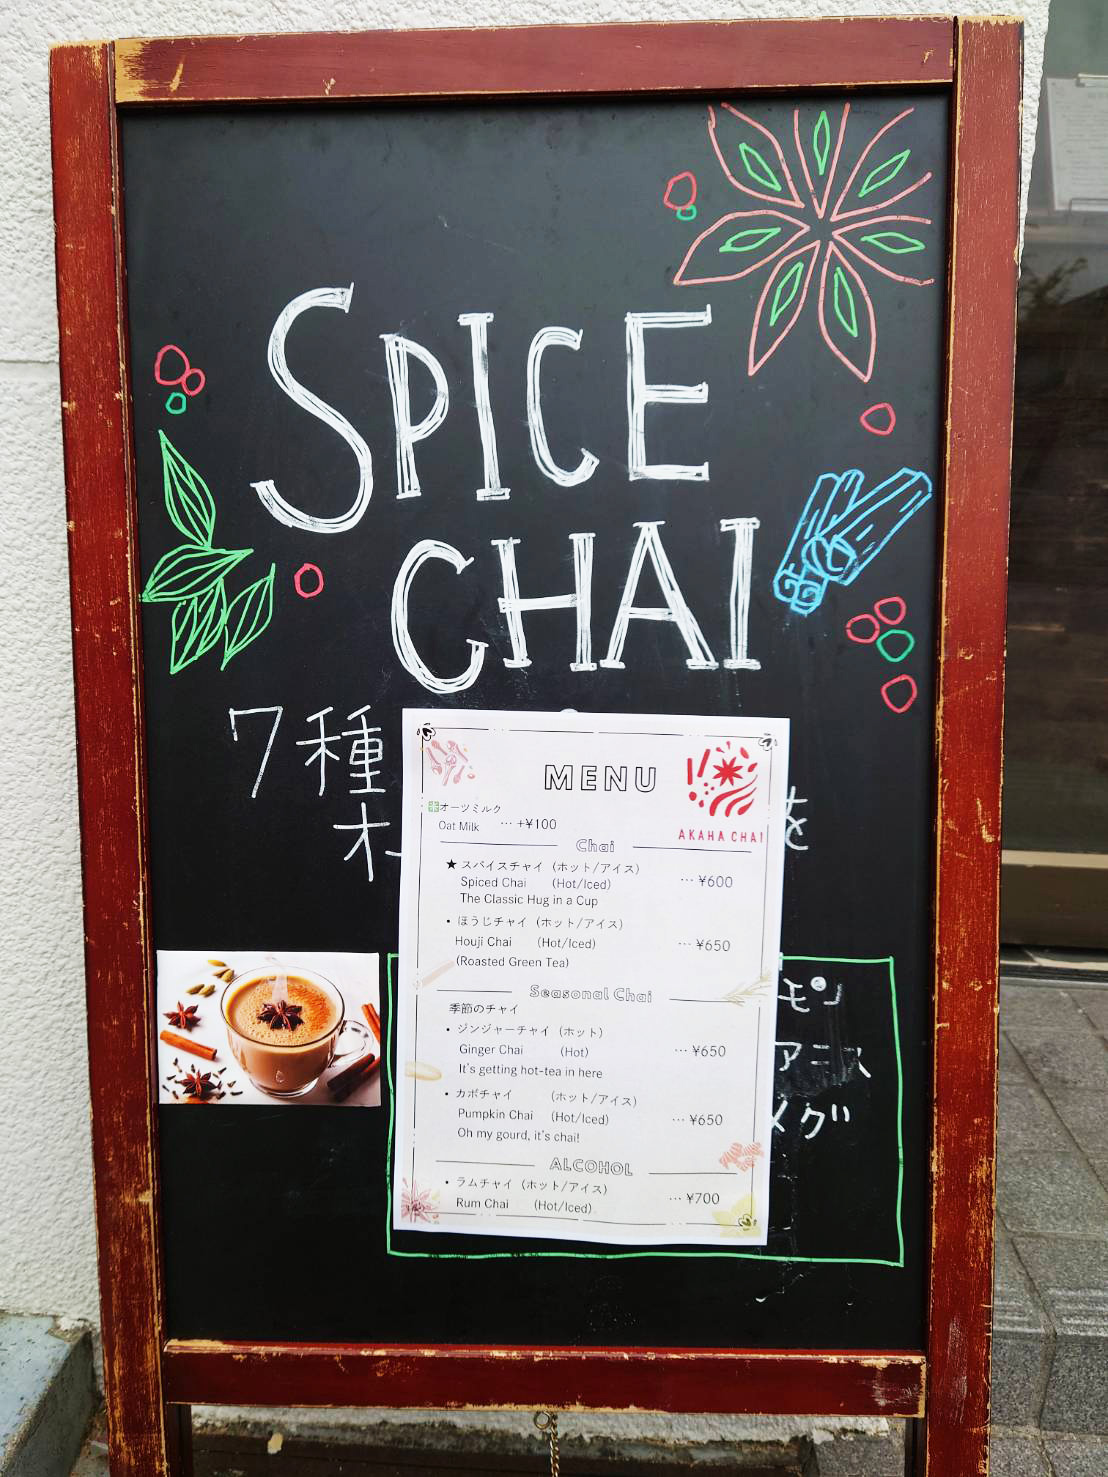 SPICE
CHAI
7種
MENU
AKAHA CHAI
オーツミルク
Oat Milk … +¥100
Chai
★ スパイスチャイ (ホット/アイス)
Spiced Chai (Hot/Iced) … ¥600
The Classic Hug in a Cup
• ほうじチャイ (ホット/アイス)
Houji Chai (Hot/Iced) … ¥650
(Roasted Green Tea)
Seasonal Chai
季節のチャイ
• ジンジャーチャイ (ホット)
Ginger Chai (Hot) … ¥650
It's getting hot-tea in here
• カボチャイ (ホット/アイス)
Pumpkin Chai (Hot/Iced) … ¥650
Oh my gourd, it's chai!
ALCOHOL
• ラムチャイ (ホット/アイス)
Rum Chai (Hot/Iced) … ¥700
を
モン
アニス
メグ